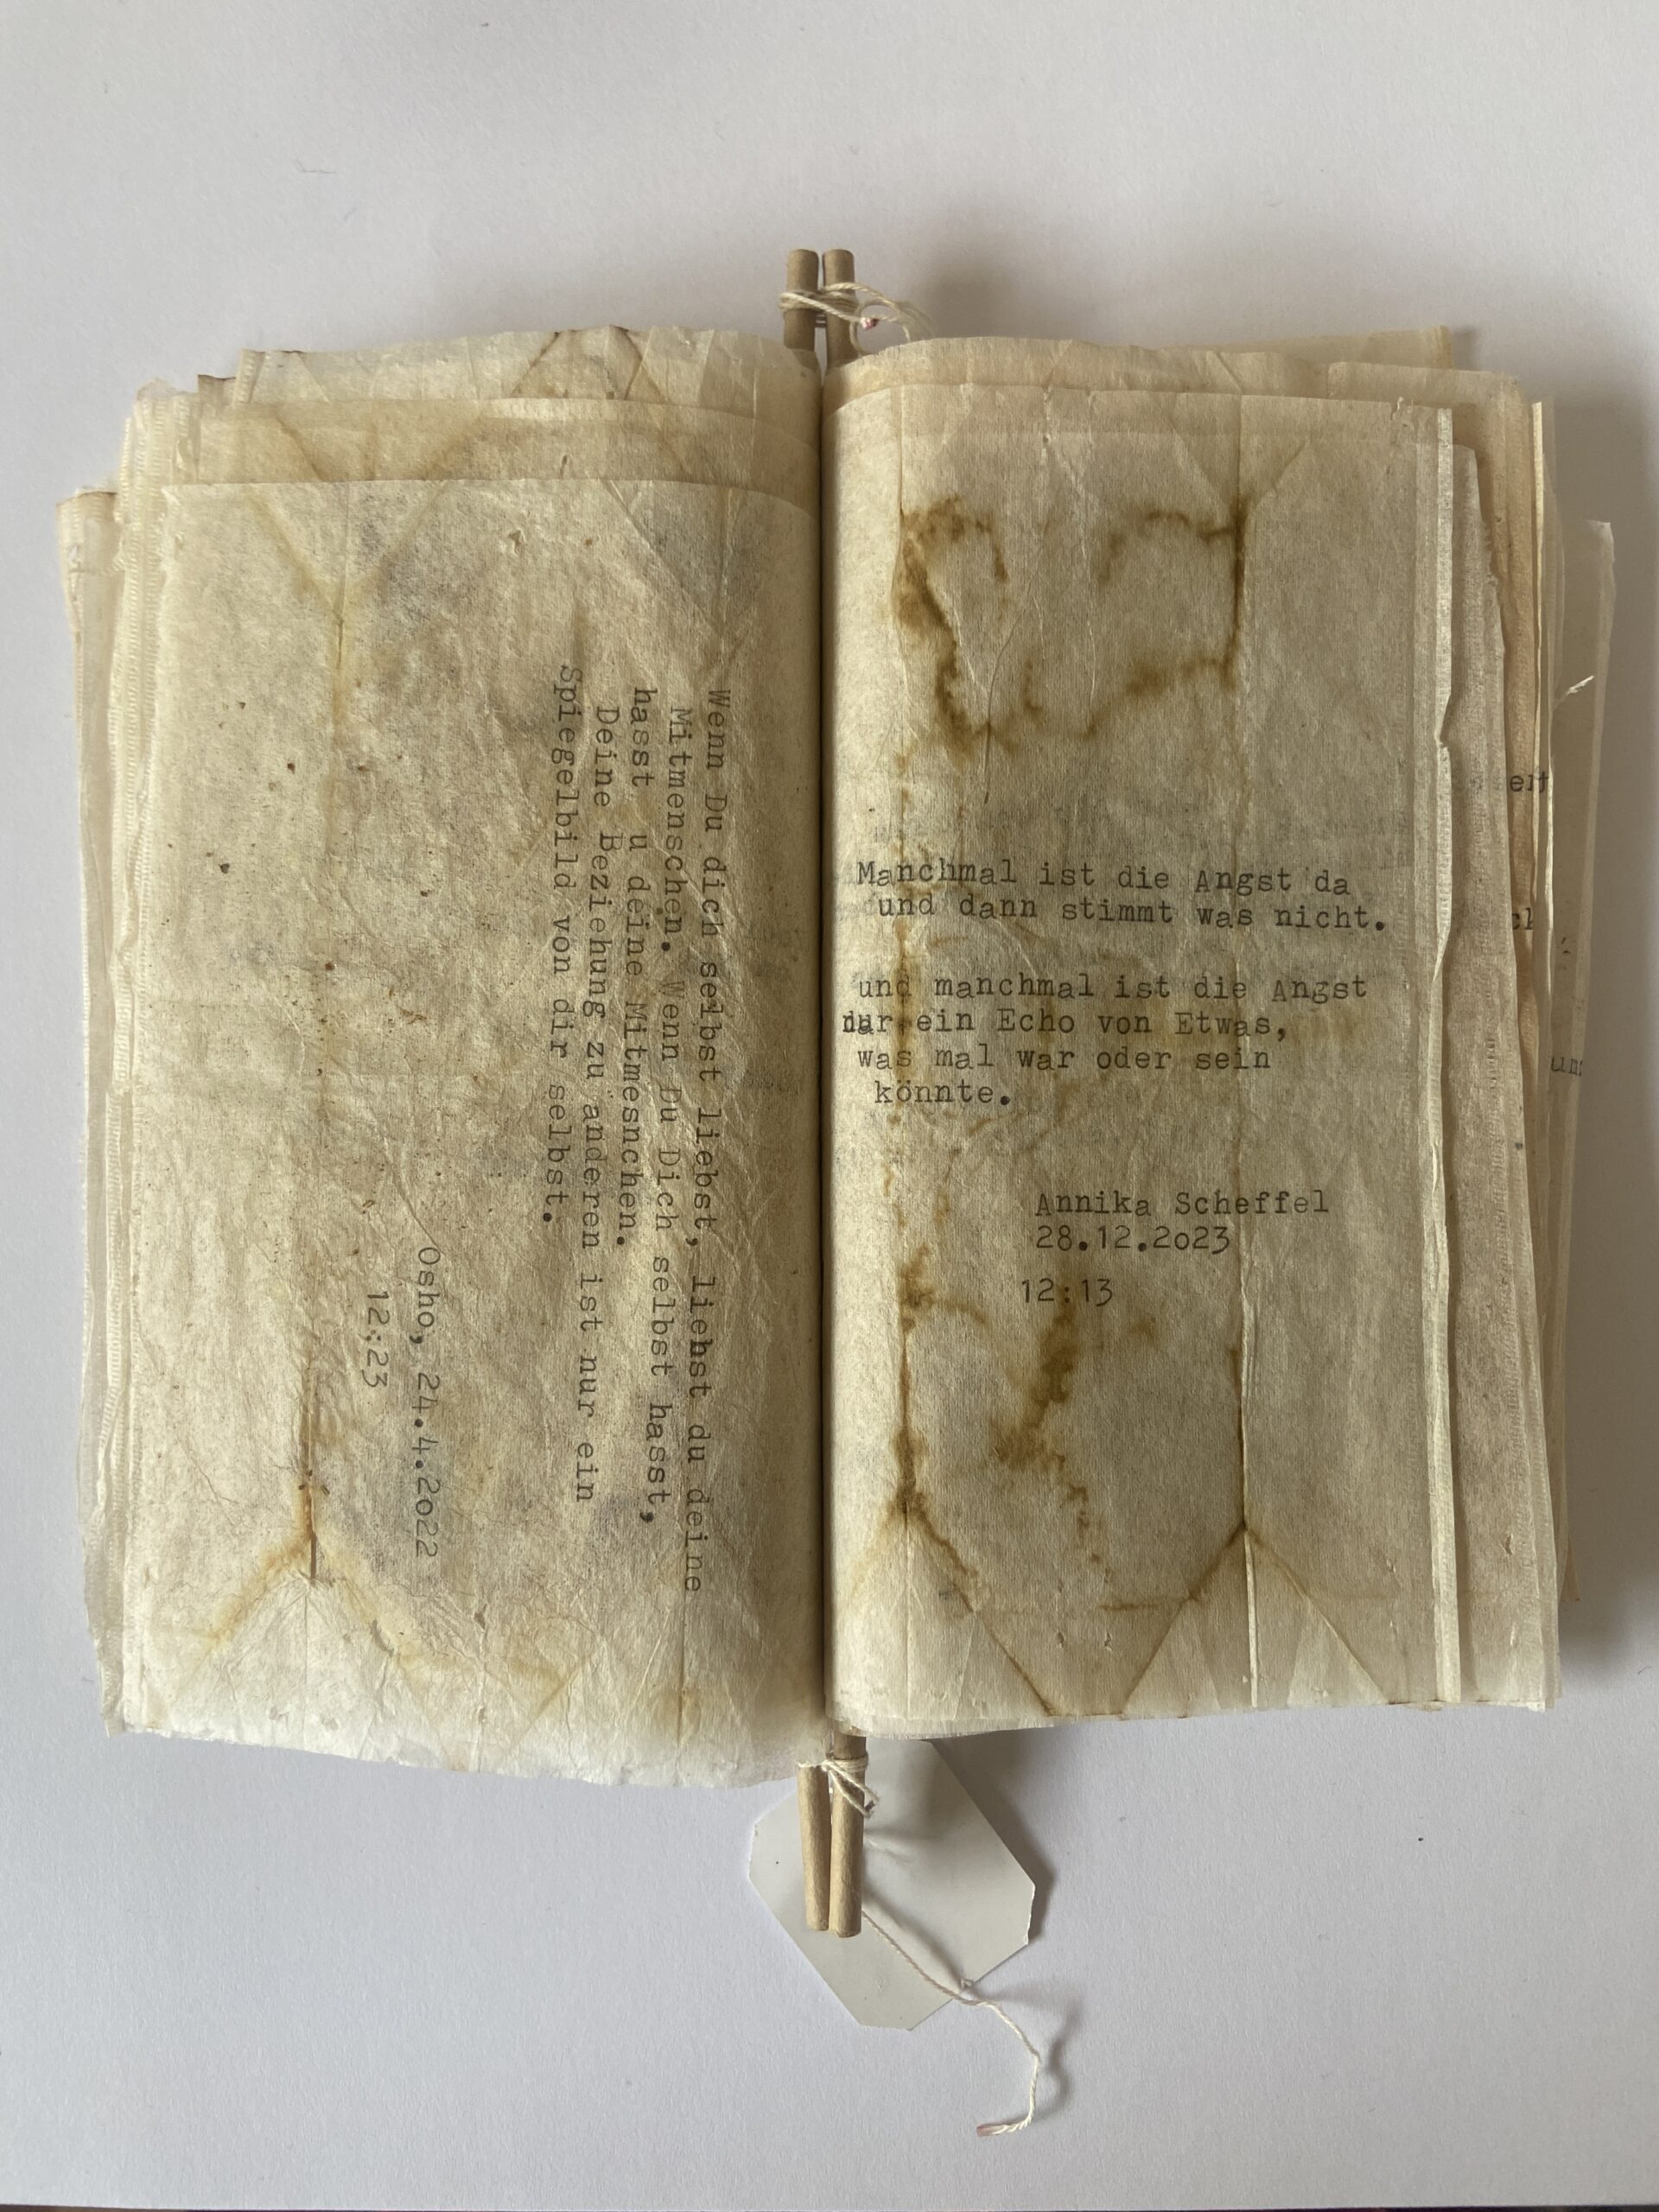 Wenn Du dich selbst liebst, liebst du deine
Mitmenschen. Wenn Du Dich selbst hasst,
hasst u deine Mitmesnchen.
Deine Beziehung zu anderen ist nur ein
Spiegelbild von dir selbst.
Osho, 24.4.2o22
12:23
Manchmal ist die Angst da
und dann stimmt was nicht.
und manchmal ist die Angst
nur ein Echo von Etwas,
was mal war oder sein
könnte.
Annika Scheffel
28.12.2o23
12:13